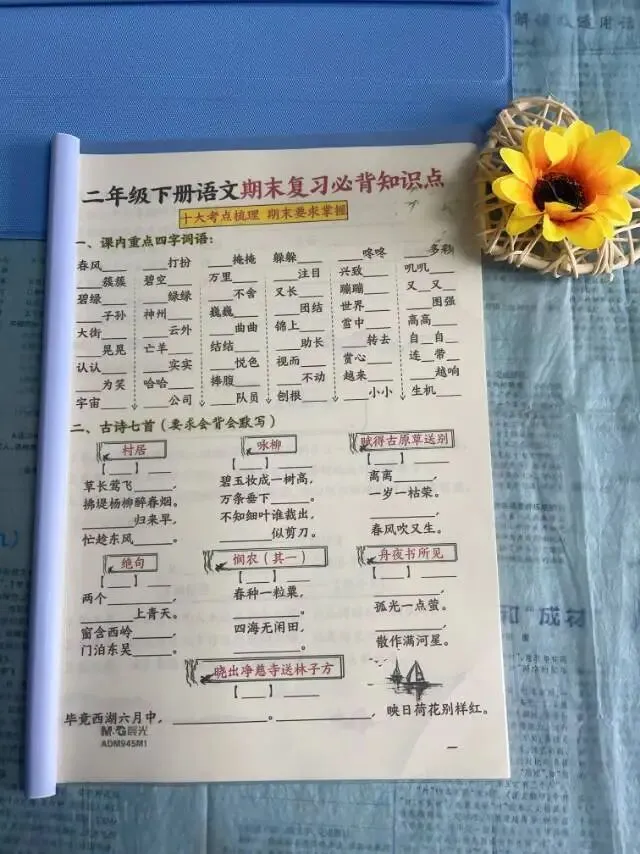 二年级下册语文期末复习必背知识点
十大考点梳理 期末要求掌握
一、课内重点四字词语:
春风____ ____打扮 ____掩掩 躲躲____ ____咚咚 ____多彩
____簇簇 碧空____ 万里____ ____注目 兴致____ 叽叽____
碧绿____ ____绿绿 ____不舍 又长____ 蹦蹦____ 又__又__
____子孙 神州____ 巍巍____ ____团结 世界____ ____图强
大街____ ____云外 ____曲曲 锦上____ 雪中____ 高高____
____晃晃 亡羊____ 结结____ ____助长 ____转去 自__自__
认认____ ____实实 ____悦色 视而____ 赏心____ 连__带__
____为笑 哈哈____ 捧腹____ ____不动 越来____ ____越响
宇宙____ ____公司 ____队员 刨根____ ____小小 生机____
二、古诗七首(要求会背会默写)
村居
【____】____
草长莺飞____,
拂堤杨柳醉春烟。
____归来早,
忙趁东风____。
咏柳
【____】____
碧玉妆成一树高,
万条垂下____。
不知细叶谁裁出,
____似剪刀。
赋得古原草送别
【____】____
离离____,
一岁一枯荣。
____,
春风吹又生。
绝句
【____】____
两个____,
____上青天。
窗含西岭____,
门泊东吴____。
悯农(其一)
【____】____
春种一粒粟,
____。
四海无闲田,
____。
舟夜书所见
【____】____
____,
孤光一点萤。
____,
散作满河星。
晓出净慈寺送林子方
【____】____
毕竟西湖六月中,____。____,映日荷花别样红。
M&G晨光
ADM945M1
一
和“成材